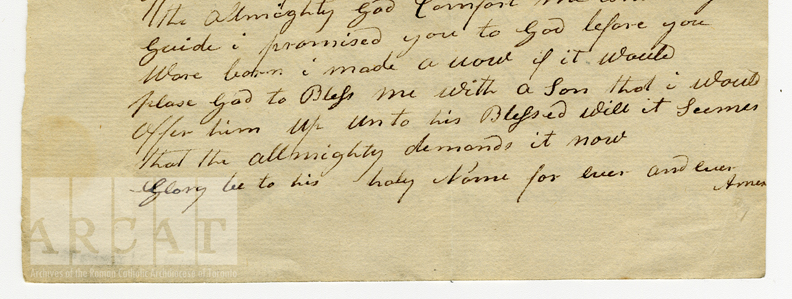 the allmighty God Comfort me
Guide i promised you to God before you
Ware born i made a vow if it would
plase God to Bless me with a Son that i would
offer him up unto his Blessed will it Seemes
that the allmighty demands it now
Glory be to his holy Name for ever and ever
Amen
ARCAT
Archives of the Roman Catholic Archdiocese of Toronto